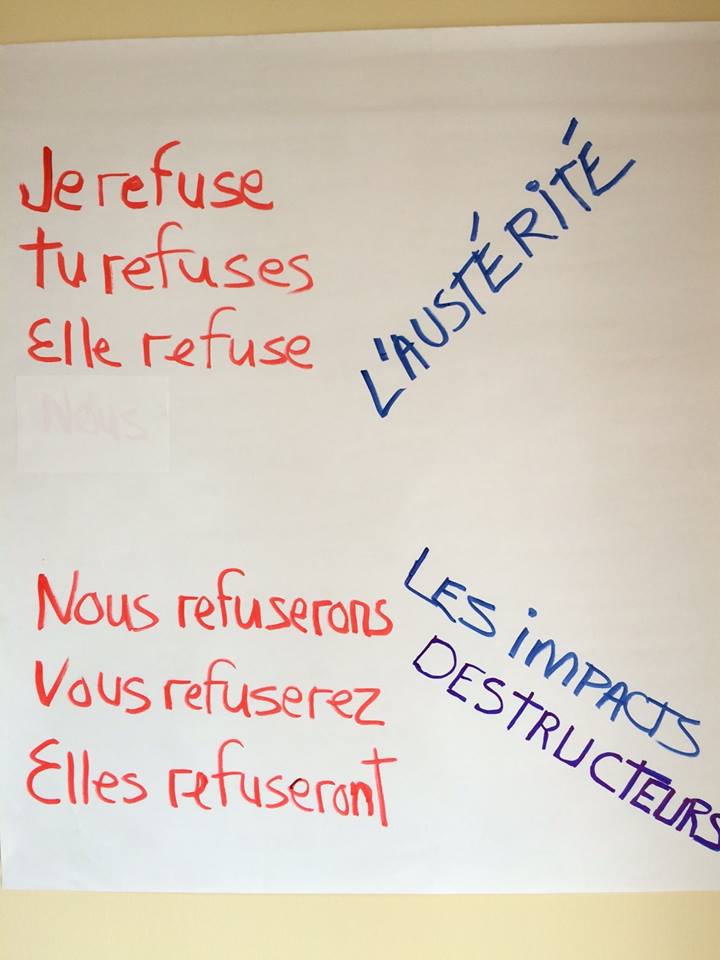 Je refuse
tu refuses
Elle refuse
L'AUSTÉRITÉ
Nous
Nous refuserons
Vous refuserez
Elles refuseront
LES IMPACTS
DESTRUCTEURS